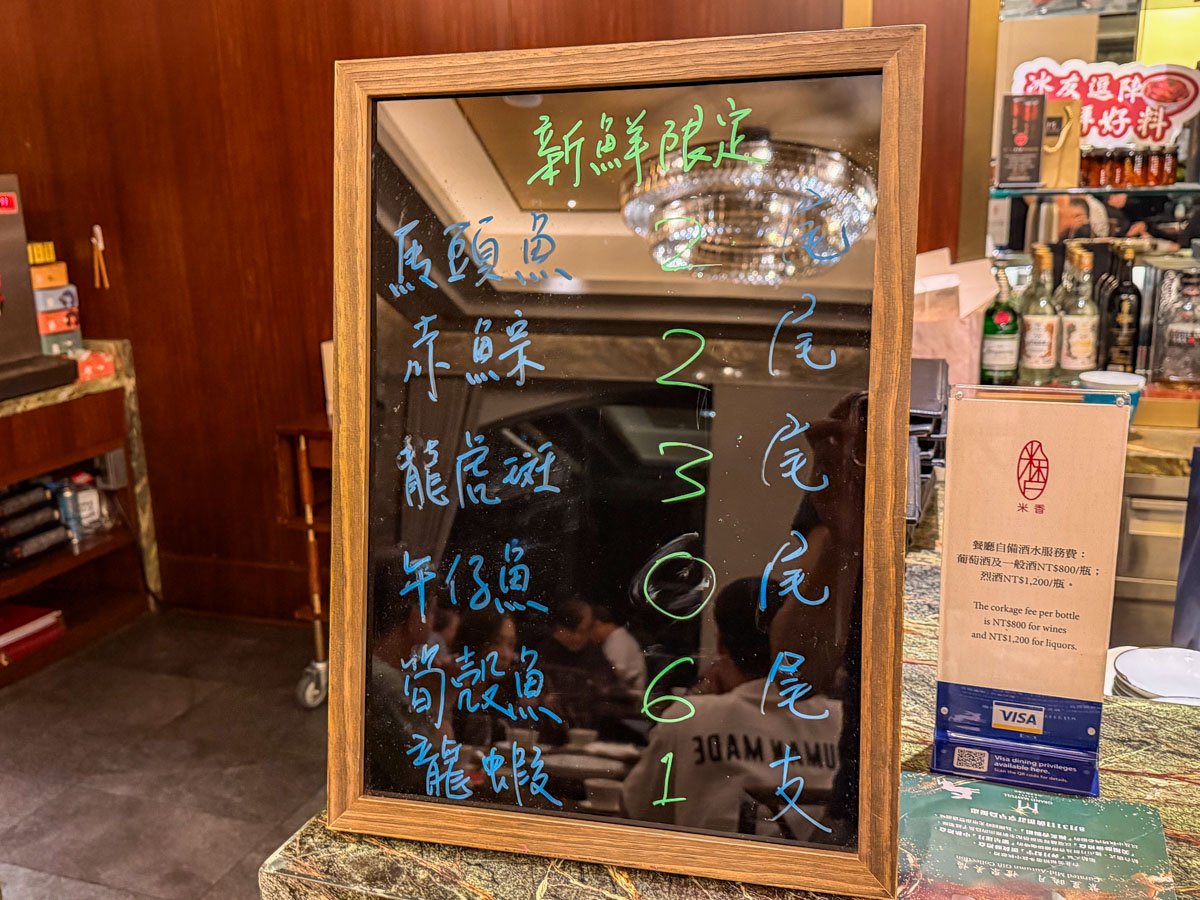 新鮮限定
馬頭魚 2 尾
赤鯮 2 尾
龍虎斑 3 尾
午仔魚 0 尾
筍殼魚 6 尾
龍蝦 1 支
冰友逗陣
好料
米香
餐廳自備酒水服務費：
葡萄酒及一般酒NT$800/瓶；
烈酒NT$1,200/瓶。
The corkage fee per bottle
is NT$800 for wines
and NT$1,200 for liquors.
VISA
Visa dining privileges
available here.
Scan the QR code for details.
UMAN MADE
Curated Mid-Autumn Gift Collection